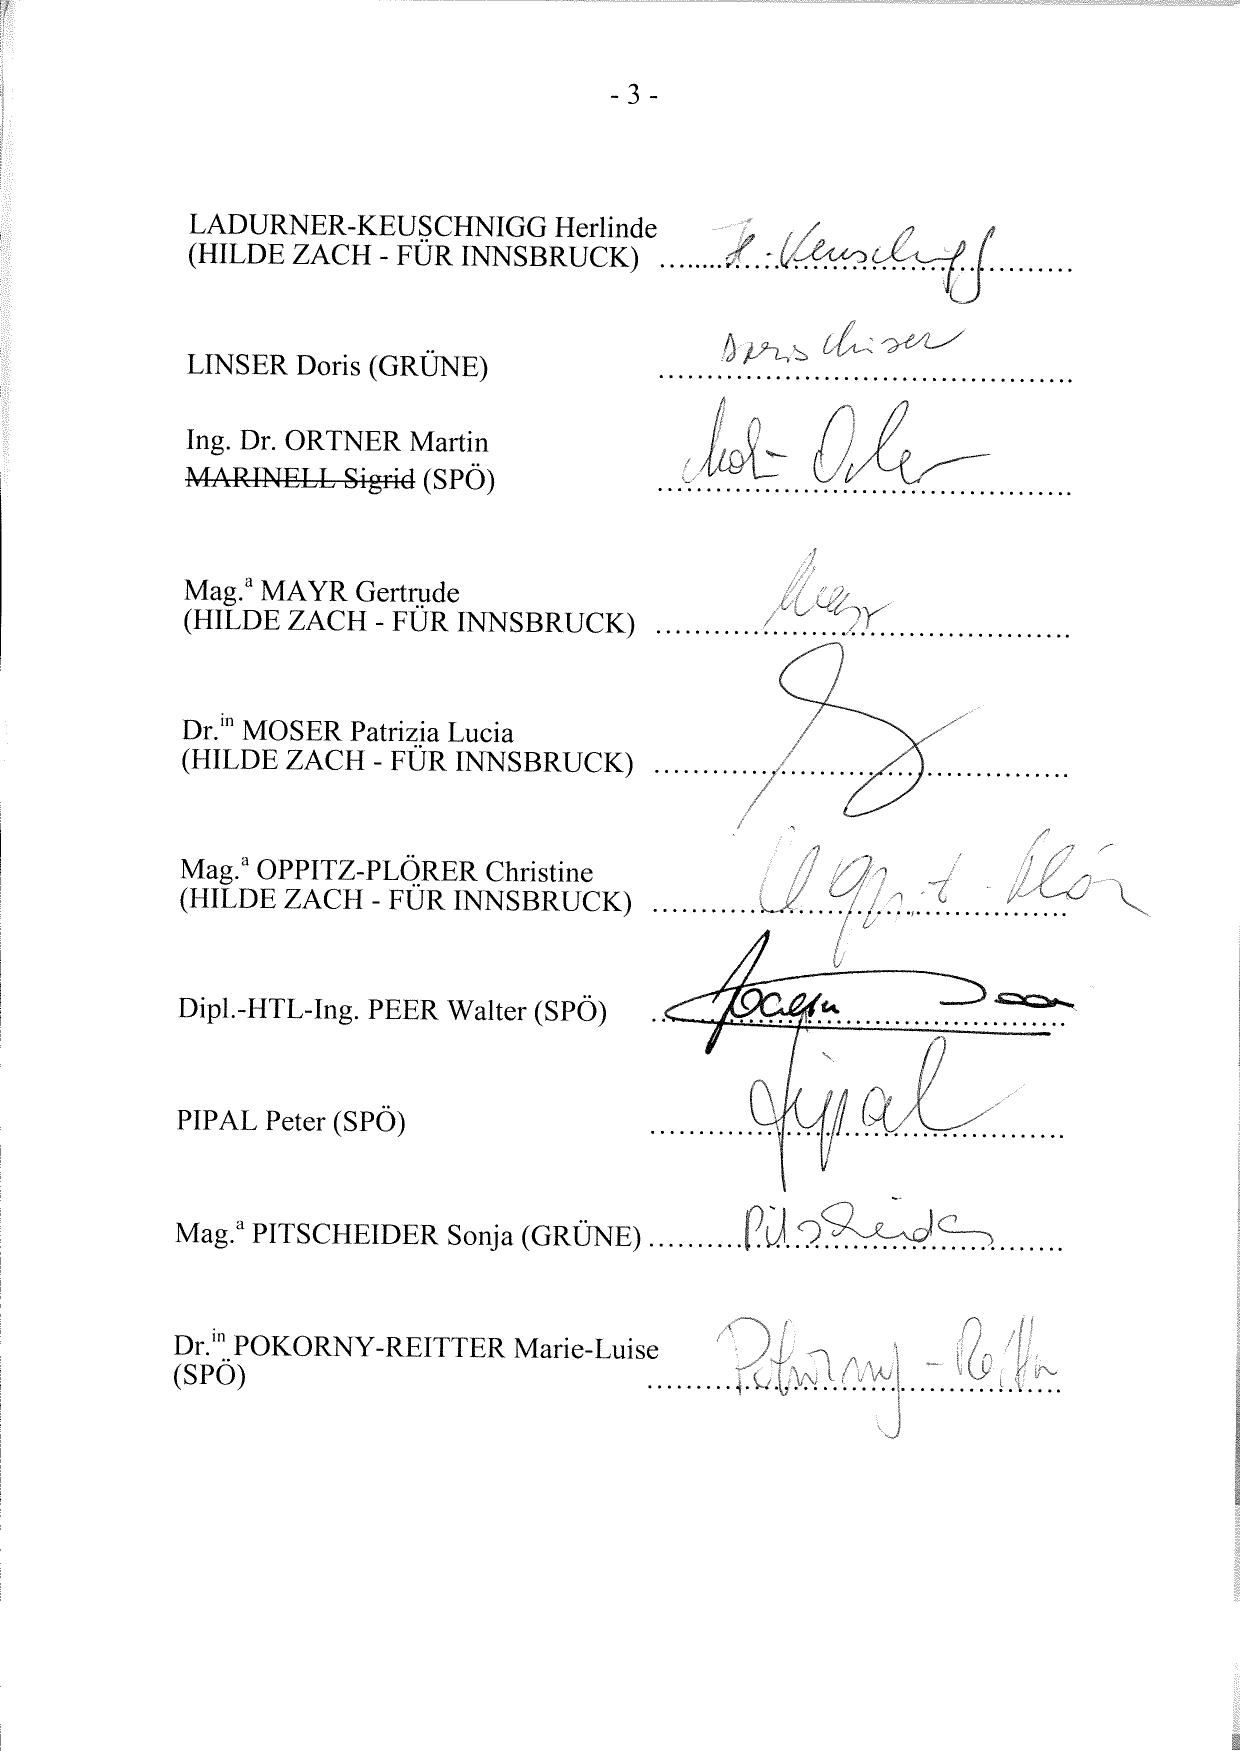 - 3 -
LADURNER-KEUSCHNIGG Herlinde
(HILDE ZACH - FÜR INNSBRUCK) ........................................
LINSER Doris (GRÜNE) ........................................
Doris Linser
Ing. Dr. ORTNER Martin
MARINELL Sigrid (SPÖ) ........................................
Mag.ª MAYR Gertrude
(HILDE ZACH - FÜR INNSBRUCK) ........................................
Mayr
Dr.in MOSER Patrizia Lucia
(HILDE ZACH - FÜR INNSBRUCK) ........................................
Mag.ª OPPITZ-PLÖRER Christine
(HILDE ZACH - FÜR INNSBRUCK) ........................................
Dipl.-HTL-Ing. PEER Walter (SPÖ) ........................................
PIPAL Peter (SPÖ) ........................................
Pipal
Mag.ª PITSCHEIDER Sonja (GRÜNE) ........................................
Pitscheider
Dr.in POKORNY-REITTER Marie-Luise
(SPÖ) ........................................
Pokorny-Reitter